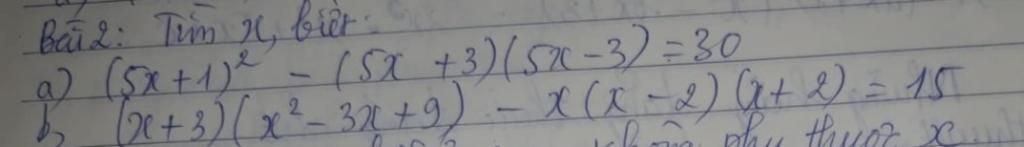 Bài 2: Tìm x, biết:
a) (5x+1)² - (5x +3)(5x-3) = 30
b, (x+3)(x² - 3x + 9) - x(x-2)(x+2) = 15
phụ thuộc x